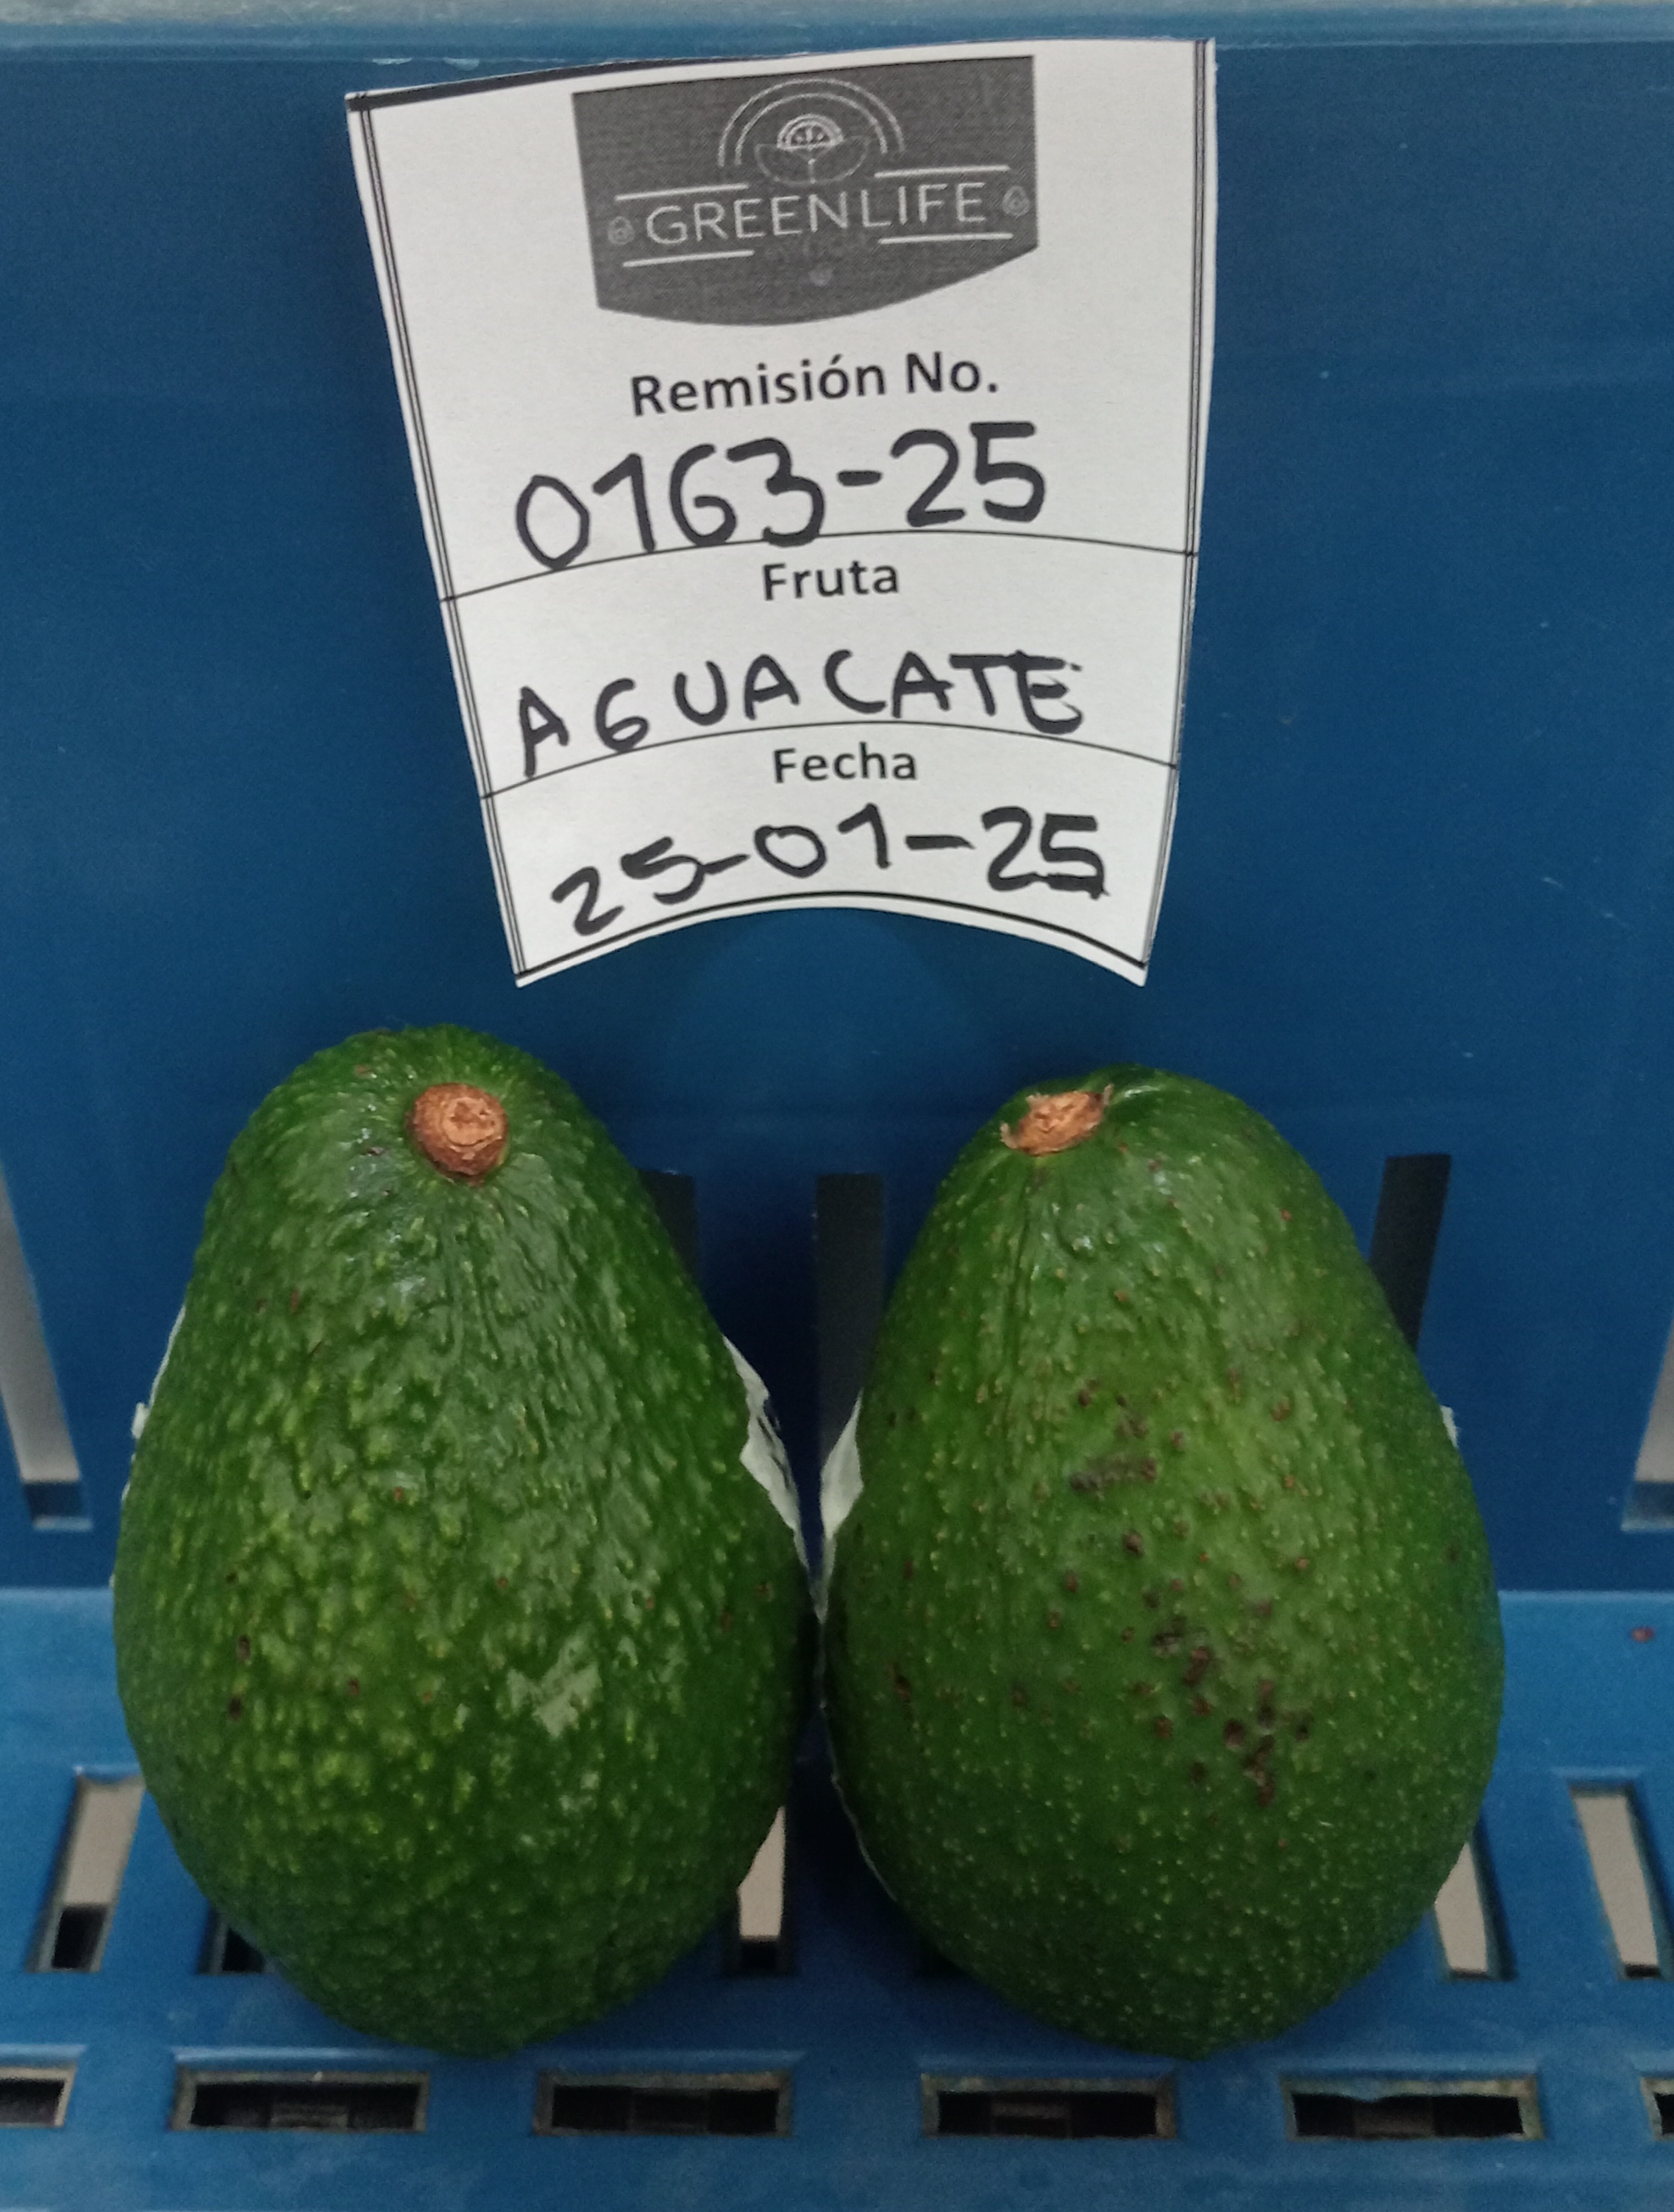 GREENLIFE
Remisión No.
0163-25
Fruta
AGUACATE
Fecha
25-01-25